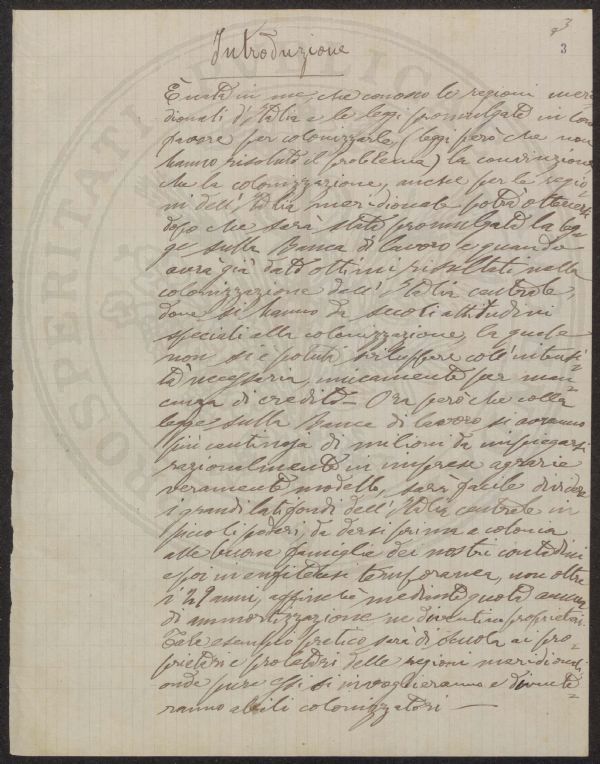 3
3
Introduzione
È nata in me, che conosco le regioni meri=
dionali d'Italia e le leggi promulgate in loro
favore per colonizzarle, (leggi però che non
hanno risoluto il problema) la convinzione
che la colonizzazione, anche per le regio
ni dell'Italia meridionale potrà ottenersi
dopo che sarà stata promulgata la leg
ge sulla Banca di lavoro e quando
avrà già dato ottimi risultati nella
colonizzazione dell'Italia centrale,
dove si hanno da secoli attitudini
speciali alla colonizzazione, la quale
non si è potuta sviluppare coll'intensi=
tà necessaria, unicamente per man=
canza di credito — Ora però che colla
legge sulla Banca di lavoro si avranno
più centinaja di milioni da impiegarsi
razionalmente in imprese agrarie
veramente modello, sarà facile dividere
i grandi latifondi dell'Italia centrale in
piccoli poderi, da darsi prima a colonia
alle buone famiglie dei nostri contadini
e poi in enfiteusi temporanea, non oltre
i 29 anni, affinchè mediante quote annue
di ammortizzazione ne diventino proprietari.
Tale esempio pratico sarà di scuola ai pro=
prietari e proletari delle regioni meridionali,
onde pure essi si invoglieranno e divente=
ranno abili colonizzatori —